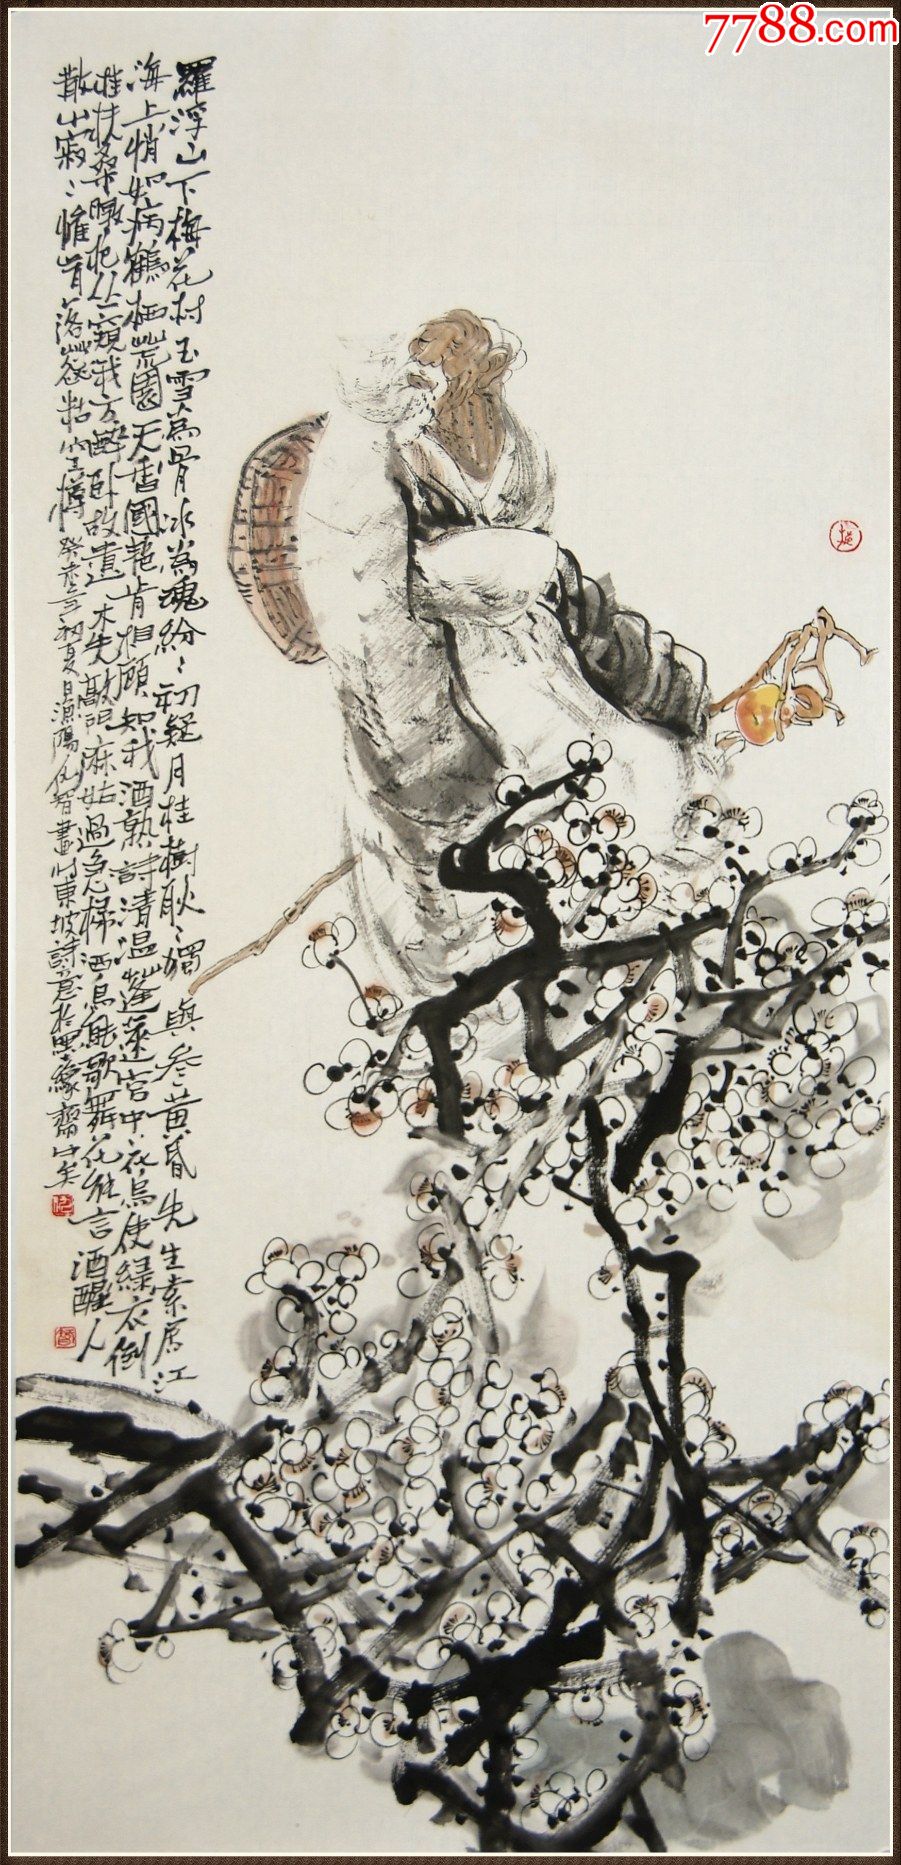 7788.com
羅浮山下梅花村玉雪為骨冰為魂紛〻初疑月桂樹耿〻獨與叁黄昏先生素居江
海上悄如病鶴栖荒園天香國艳肯相顧知我酒熟詩清温蓬萊宮中花鳥使綠衣倒
桂扶桑暾抱丛窺我方醉卧故遣木先敲門麻姑過急掃洒鳥能歌舞花能言酒醒人
散山寂〻惟有落蕊粘空樽 癸未初夏月漁陽仙智畫東坡詩意於墨緣齋